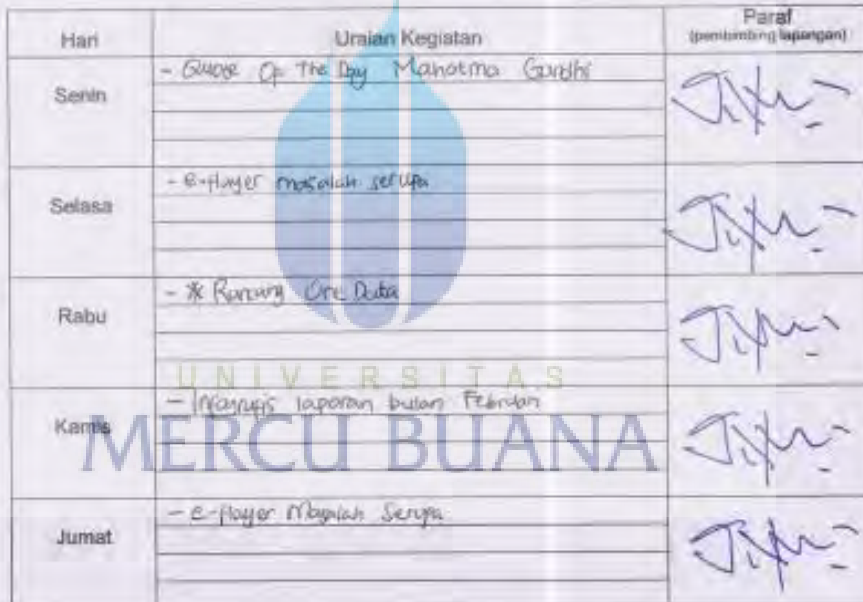 Hari Uraian Kegiatan Paraf
(pembimbing lapangan)
Senin - Quote Of The Day Mahatma Gandhi
Selasa - e-flayer masalah serupa
Rabu - * One Data
Kamis - laporan bulan Februari
Jumat - e-flayer Masalah Serupa
UNIVERSITAS
MERCU BUANA